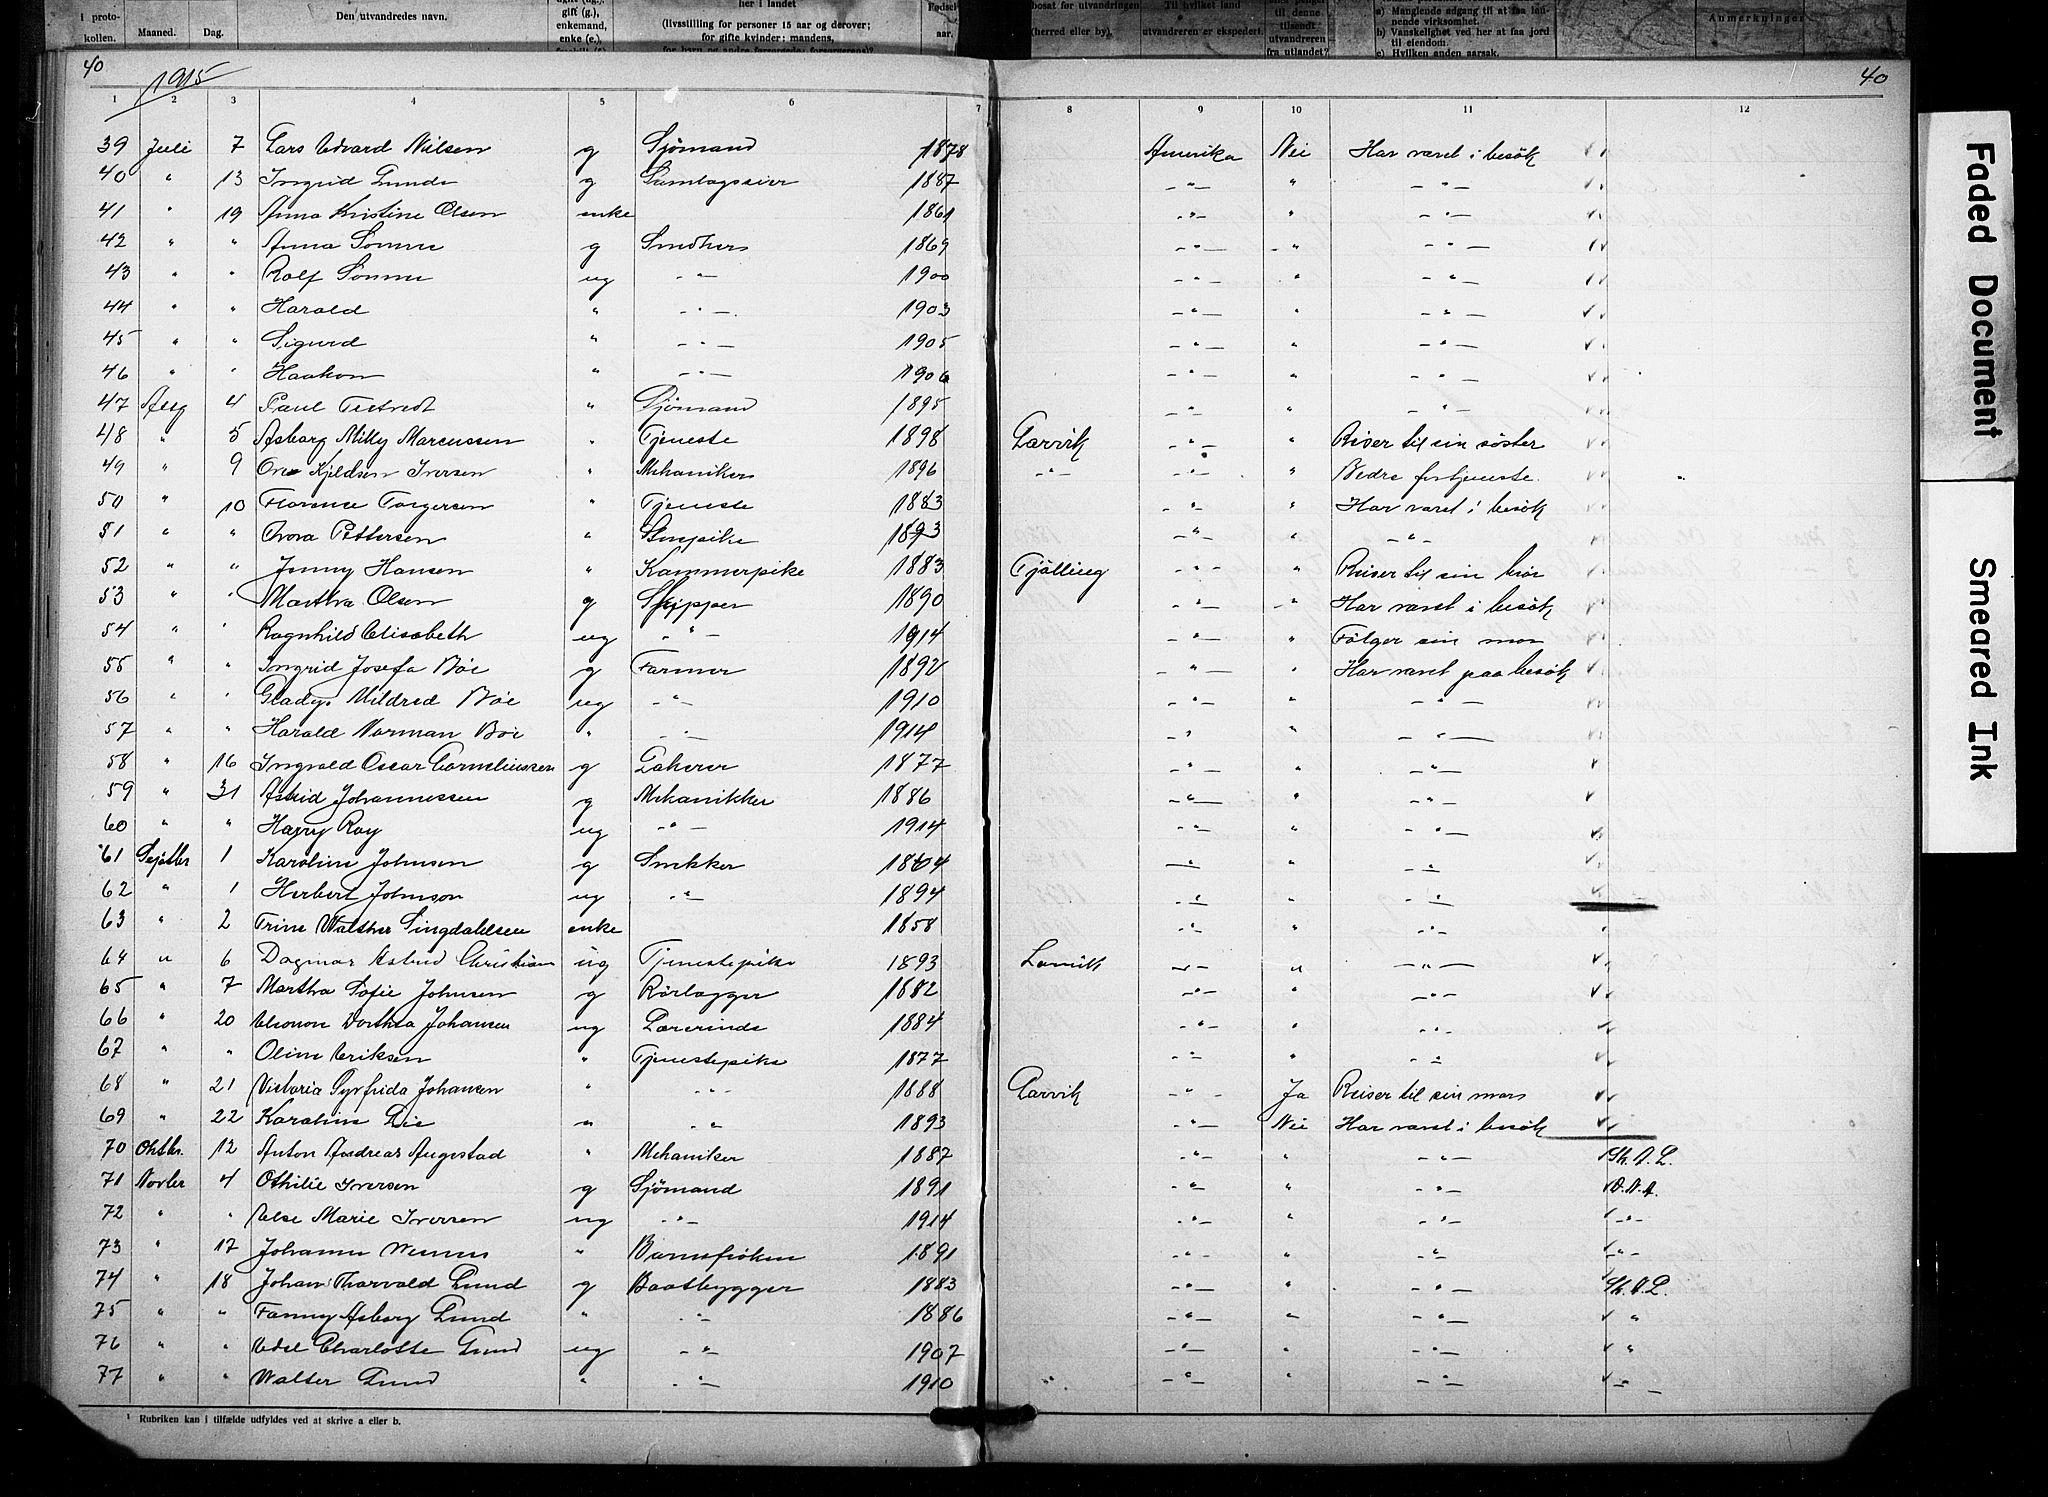 i proto-
kollen.
Maaned.
Dag.
Den utvandredes navn.
gift (g.),
enkemand,
enke (e.),
her i landet
(livsstilling for personer 15 aar og derover;
for gifte kvinder: mandens,
aar.
bosat før utvandringen
(herred eller by).
Til hvilket land
utvandreren er ekspedert
til denne
tilsendt
utvandreren
fra utlandet?
a) Manglende adgang til at faa løn-
nende virksomhet.
b) Vanskelighet ved her at faa jord
til eiendom.
c) Hvilken anden aarsak.
Anmerkninger
40 1915 40
1 2 3 4 5 6 7 8 9 10 11 12
39 Juli 7 Lars Edvard Nilsen g Sjømand 1878 Amerika Nei Har været i besøk
40 " 13 Ingrid Lunde g 1887 -"- " -"-
41 " 19 Anna Kristine Olsen enke 1861 -"- " -"-
42 " " Anna Sømme g Snedkers 1869 -"- " -"-
43 " " Rolf Sømme ug -"- 1900 -"- " -"-
44 " " Harald " -"- 1903 -"- " -"-
45 " " Sigurd " -"- 1905 -"- " -"-
46 " " Haakon " -"- 1906 -"- " -"-
47 Aug 4 Paul " Sjømand 1895 -"- " -"-
48 " 5 Asborg Milly Marcussen " Tjeneste 1898 Larvik -"- " Reiser til sin søster
49 " 9 Ove Kjeldsen Iversen " Mekaniker 1896 -"- -"- " Bedre fortjeneste
50 " 10 Florence Torgersen " Tjeneste 1883 -"- " Har været i besøk
51 " " Thora Pettersen " 1893 -"- " -"-
52 " " Jenny Hansen " Kammerpike 1883 Tjølling -"- " Reiser til sin bror
53 " " Martha Olsen g Skipper 1890 -"- " Har været i besøk
54 " " Ragnhild Elisabeth ug -"- 1914 -"- " Følger sin mor
55 " " Ingrid Josefa Bøe g Farmer 1892 -"- " Har været paa besøk
56 " " Gladys Mildred Bøe ug -"- 1910 -"- " -"-
57 " " Harald Norman Bøe " -"- 1914 -"- " -"-
58 " 16 Ingvald Oscar Corneliussen g Lakerer 1877 -"- " -"-
59 " 31 Astrid Johannessen g Mekanikker 1886 -"- " -"-
60 " " Harry Roy ug -"- 1914 -"- " -"-
61 Septbr 1 Karoline Johnsen g Snekker 1864 -"- " -"-
62 " 1 Herbert Johnson ug -"- 1894 -"- " -"-
63 " 2 Trine Walther Singdahlsen enke 1858 -"- " -"-
64 " 6 Dagmar Astrid Christian ug Tjenestepike 1893 Larvik -"- " -"-
65 " 7 Martha Sofie Johnsen g Rørlægger 1882 -"- " -"-
66 " 20 Elenon Dorthea Johansen ug Lærerinde 1884 -"- " -"-
67 " " Oline Eriksen " Tjenestepike 1877 -"- " -"-
68 " 21 Victoria Syrfrida Johansen " -"- 1888 Larvik -"- Ja Reiser til sin mor
69 " 22 Karoline Lie " -"- 1893 -"- Nei Har været i besøk
70 Oktbr. 12 Anton Andreas Augestad " Mekaniker 1887 -"- " -"- Sk. A. L.
71 Novbr 4 Othilie Iversen g Sjømand 1891 -"- " -"- D.N.A.
72 " " Else Marie Iversen ug -"- 1914 -"- " -"- -"-
73 " 17 Johanne " Barnefrøken 1891 -"- " -"- -"-
74 " 18 Johan Thorvald Lund g Baatbygger 1883 -"- " -"- Sk. A. L.
75 " " Fanny Asborg Lund " -"- 1886 -"- " -"- "
76 " " Edel Charlotte Lund ug -"- 1907 -"- " -"- "
77 " " Walter Lund " -"- 1910 " -"- " -"- -"-
¹ Rubriken kan i tilfælde udfyldes ved at skrive a eller b.
Faded Document
Smeared Ink